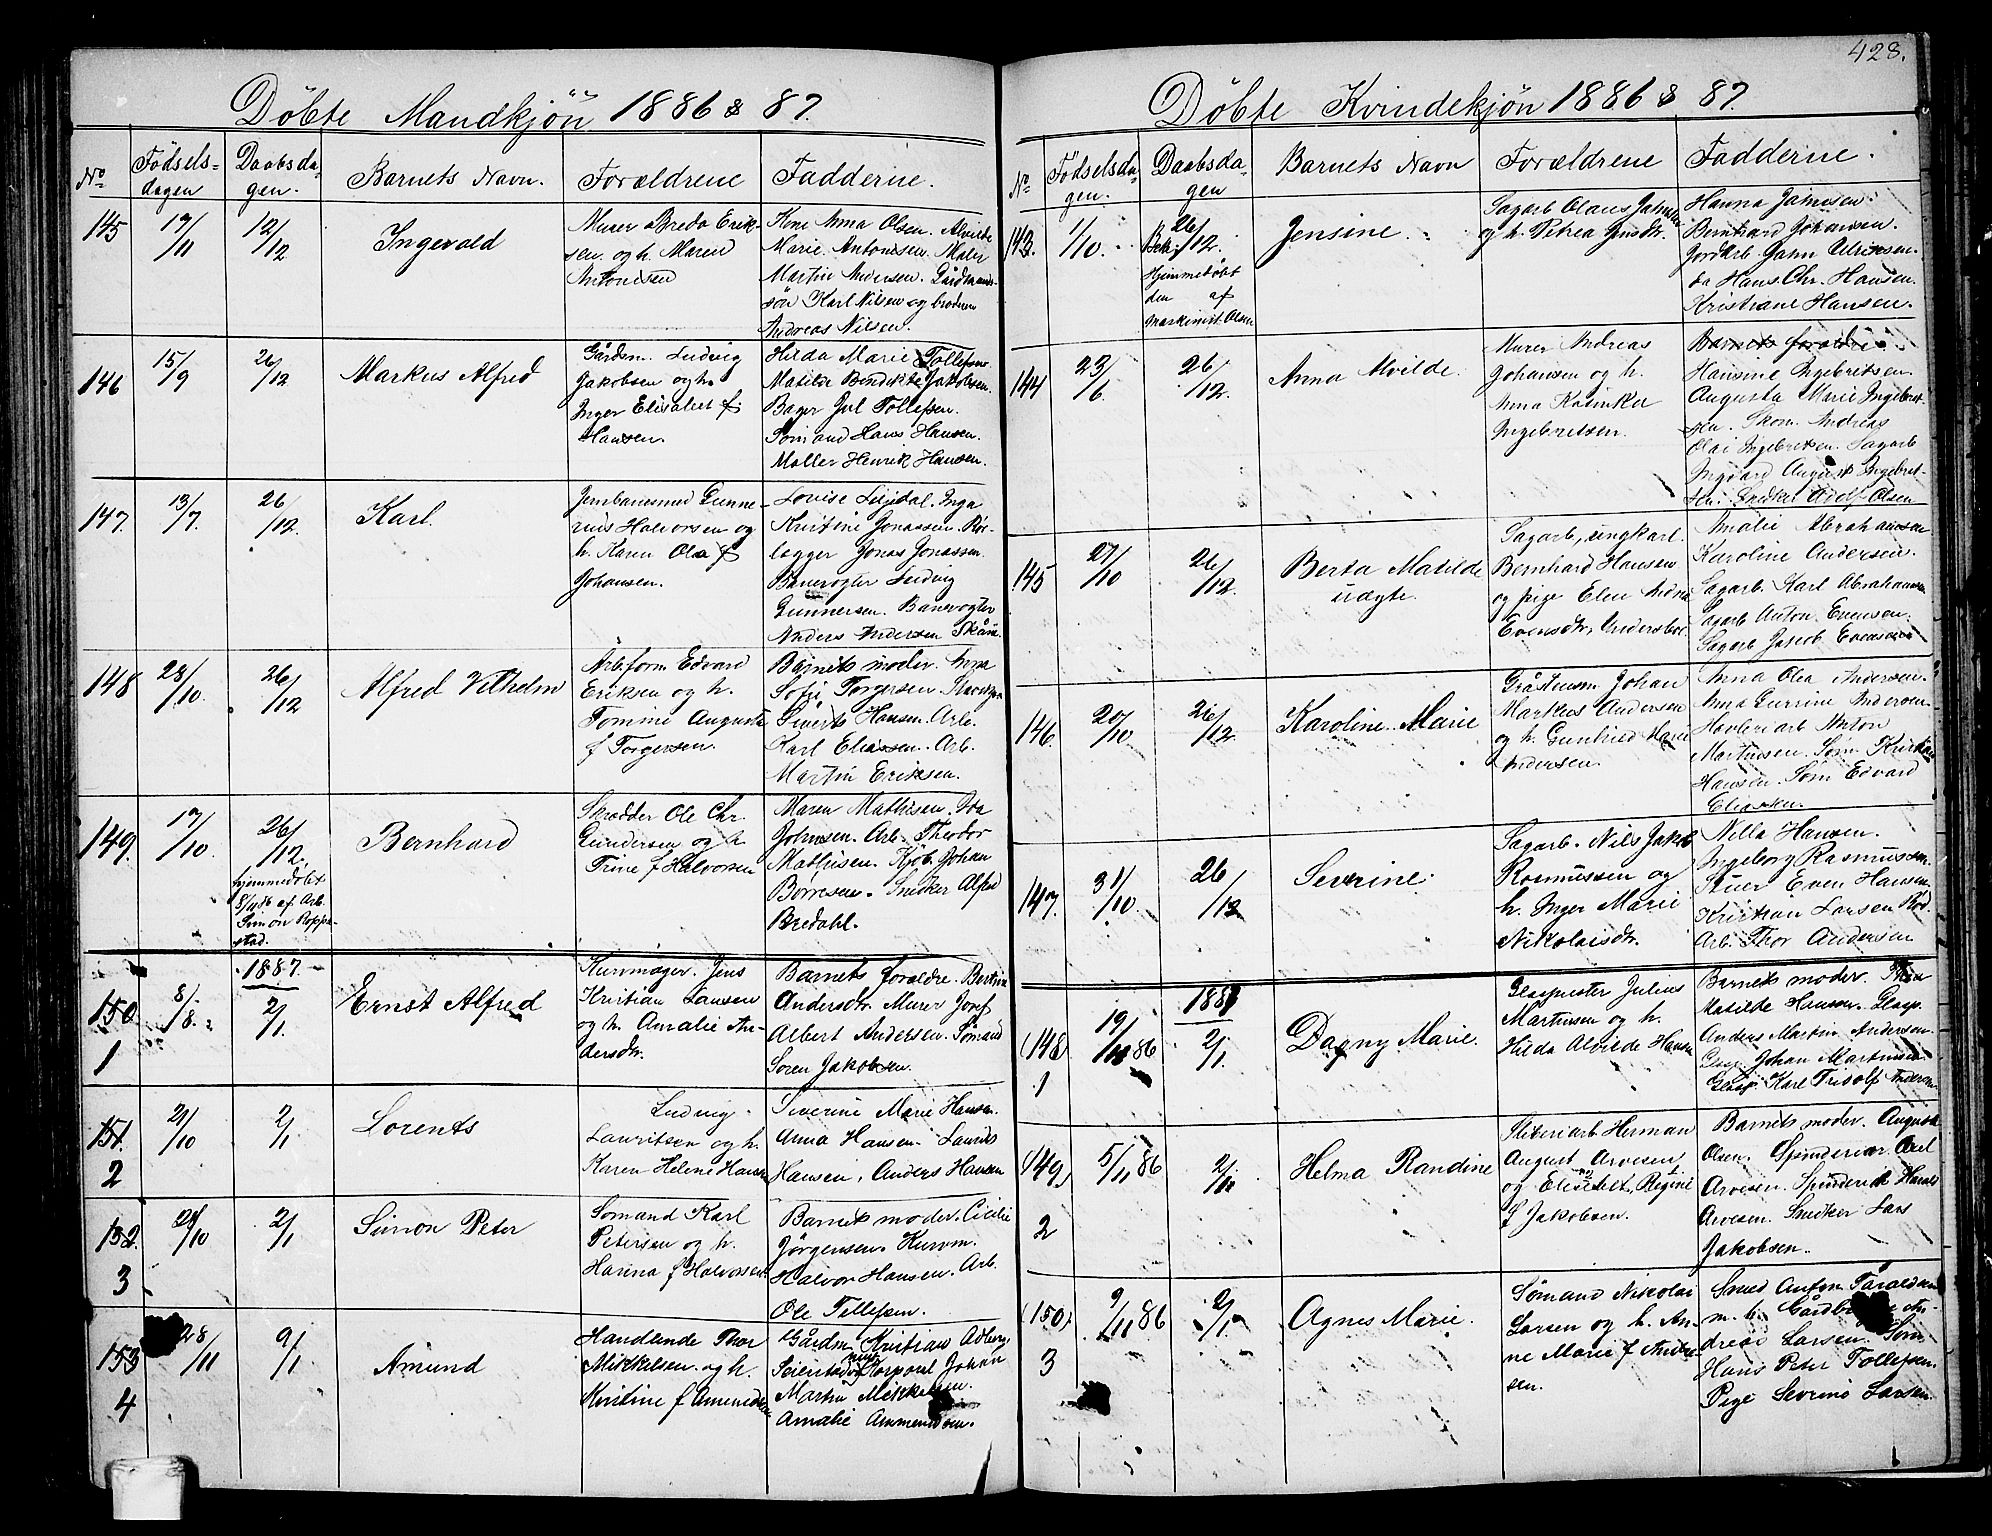 428.
Döbte Mandkjön 1886 & 87.
No
Födsels-
dagen
Daabsda-
gen.
Barnets Navn.
Forældrene
Fadderne.
145
17/11
12/12
Ingevald
Murer Bredo Erik-
sen og h. Maren
Antonisen
Kone Anna Olsen. Alvilde
Marie Antonissen. Maler
Martin Andersen. Gårdmands-
sön Karl Nilsen og broderen
Andreas Nilsen.
146
15/9
26/12
Markus Alfred
Gårdm. Ludvig
Jakobsen og h.
Inger Elisabet f.
Hansen.
Hilda Marie Tollefsen
Matilde Bendikte Jakobsen.
Bager Jul Tollefsen.
Sömand Hans Hansen.
Möller Henrik Hansen.
147.
13/7.
26/12.
Karl.
Jernbanesmed Gunne-
rius Halvorsen og
h. Karen Ola f
Johansen.
Lovise Liljedal. Inga
Kristine Jonassen. Rör-
legger Jonas Jonassen.
Banevogter Ludvig
Gunnersen. Banevogter
Anders Andersen Skåne.
148
28/10.
26/12
Alfred Vilhelm
Arb.form. Edvard
Eriksen og h.
Tomine Augusta
f Torgersen.
Barnets moder. Anna
Sofie Torgersen.
Sivert Hansen. Arb.
Karl Eliassen. Arb.
Martin Eriksen.
149.
17/10.
26/12.
hjemmedöbt
8/11 86 af Arb.
Simon Roppe-
stad.
Bernhard
Skrædder Ole Chr.
Gundersen og h
Trine f Halvorsen
Maren Mathisen. Ida
Johnsen. Arb. Theodor
Mathisen. Kjöb. Johan
Börresen. Snedker Alfred
Bredahl.
1887.
150
1
8/8.
2/1.
Ernst Alfred
Kurvmager. Jens
Kristian Laursen
og h. Amalie An-
dersdtr.
Barnets foraldre. Bertine
Andersdtr. Murer Josef
Albert Andersen. Sömand
Sören Jakobsen.
151.
2
21/10
2/1
Lorents
Ludvig
Lauritsen og h.
Karen Helene Hansen
Siverine Marie Hansen.
Anna Hansen. Laurits
Hansen, Anders Hansen
152.
3
29/10
2/1
Simon Peter
Sömand Karl
Petersen og h.
Harina f Halvorsen.
Barnets moder. Cicilie
Jörgensen. Kurvm.
Halvor Hansen. Arb.
Ole Tellefsen.
153
4
28/11
9/1
Amund
Handlende Thor
Mikkelsen og h.
Kristine f Amundsen
Gårdm Kristian Adberg.
Korporal Johan
Martin Mikkelsen.
Amalie Ammundsen.
Döbte Kvindekjön 1886 & 87.
No
Födselsda-
gen.
Daabsda-
gen
Barnets Navn
Forældrene
Fadderne.
143.
1/10.
Bekr. 26/12.
Hjemmedöbt
den af
Maskinist Olsen
Jensine.
Sagarb Olaus Jahnsen
og h. Petrea Jensdtr.
Hanna Jahnsen.
Bernhard Johansen.
Jordarb. Jahn Ulriksen.
do Hans Chr. Hansen.
Kristiane Hansen.
144
23/6.
26/12.
Anna Alvilde.
Murer Andreas
Johansen og h.
Anna Kasinka
Ingebretsen.
Barnets foraldre
Hansine Ingebritsen.
Augusta Marie Ingebret-
sen. Skom. Andreas
Olai Ingebretsen. Sagarb
Ingvard August Ingebret-
sen. Snedker Adolf Olsen
145
27/10
26/12.
Berta Matilde
uægte.
Sagarb, ungkarl
Bernhard Hansen
og pige Elen Andrea
Evensdtr, Andersbo.
Amalie Abrahamsen
Karoline Andersen.
Sagarb. Karl Abrahamsen
Sagarb Anton Evensen.
Sagarb Jakob Evensen
146.
20/10
26/12.
Karoline Marie
Gråstensm Johan
Markus Andersen
og h. Gunhild Marie
Andersen.
Anna Olea Andersen.
Anna Gurrine Andersen
Hövleriarb Anton
Martinsen. Söm Kristian
Hansen. Söm Edvard
Eliassen.
147.
31/10.
26/12
Severine
Sagarb. Nils Jakob
Rasmussen og
h. Inger Marie
Nikolaisdtr.
Nilla Hansen.
Ingeborg Rasmussen
Stuer Even Hansen.
Kristian Larsen Röd.
Arb. Thor Andersen
1887
(148)
1
19/10 86
2/1.
Dagny Marie.
Glaspuster Julius
Martinsen og h.
Hilda Alvilde Hansen
Barnets moder. Thea
Matilde Hansen. Glasp.
Anders Martin Andersen.
Glasp. Johan Martinsen
Glasp. Karl Fridolf Andersen
(149)
2
5/11 86
2/1
Helma Randine
Sliberiarb Herman
August Arvesen
og Elisabet Regine
f Jakobsen.
Barnets moder. Augusta
Olsen. Spinderiar. Axel
Arvesen. Spinderiar Harald
Arvesen. Snedker Lars
Jakobsen.
(150)
3
9/11 86
2/1.
Agnes Marie.
Sömand Nikolai
Larsen og h. An-
ne Marie f Andre-
sen.
Smed Anton Taraldsen
m. h. Gårdbruger An-
dreas Larsen. Söm
Hans Peter Tollefsen.
Pige Severine Larsen.